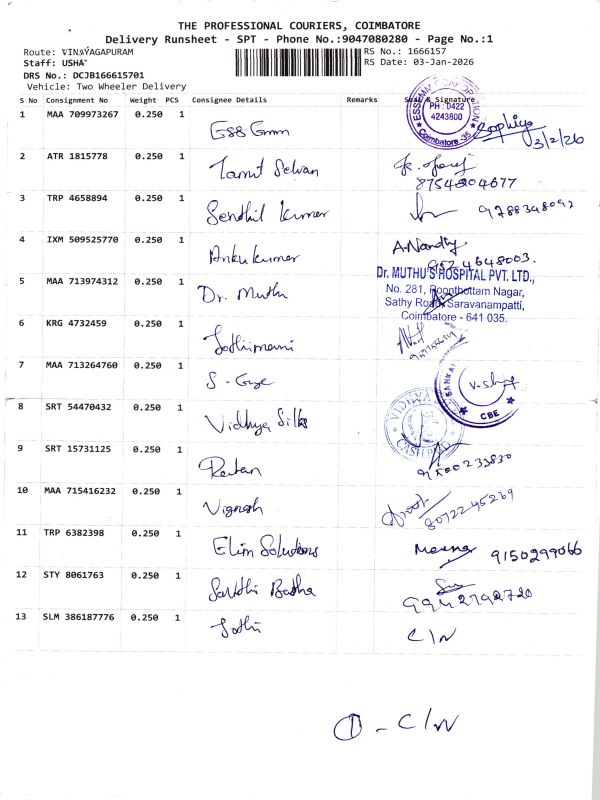 THE PROFESSIONAL COURIERS, COIMBATORE
Delivery Runsheet - SPT - Phone No.:9047080280 - Page No.:1
Route: VINAYAGAPURAM
RS No.: 1666157
Staff: USHA
RS Date: 03-Jan-2026
DRS No.: DCJB166615701
Vehicle: Two Wheeler Delivery
S No Consignment No Weight PCS Consignee Details Remarks Seal & Signature
1 MAA 709973267 0.250 1
PH : 0422
4243800
Coimbatore 35
Sophiya
3/2/26
2 ATR 1815778 0.250 1 Tamil Selvan
8754204677
3 TRP 4658894 0.250 1 Sendhil Kumar 9788348092
4 IXM 509525770 0.250 1 Ankukumar A. Nandhy
9524648003.
5 MAA 713974312 0.250 1 Dr. Muthu
Dr. MUTHU'S HOSPITAL PVT. LTD.,
No. 281, Poonthottam Nagar,
Sathy Road, Saravanampatti,
Coimbatore - 641 035.
6 KRG 4732459 0.250 1 Jothimani
7 MAA 713264760 0.250 1
SANKAR
CBE
8 SRT 54470432 0.250 1 Vidhya Silks
VIDHYA
CASH PAID
9 SRT 15731125 0.250 1 Ratan
10 MAA 715416232 0.250 1 Vignesh
8072245269
11 TRP 6382398 0.250 1 Elim Solutions Meena 9150299066
12 STY 8061763 0.250 1 Santhi Badha
9942792720
13 SLM 386187776 0.250 1 Jothi C/N
① - C/N